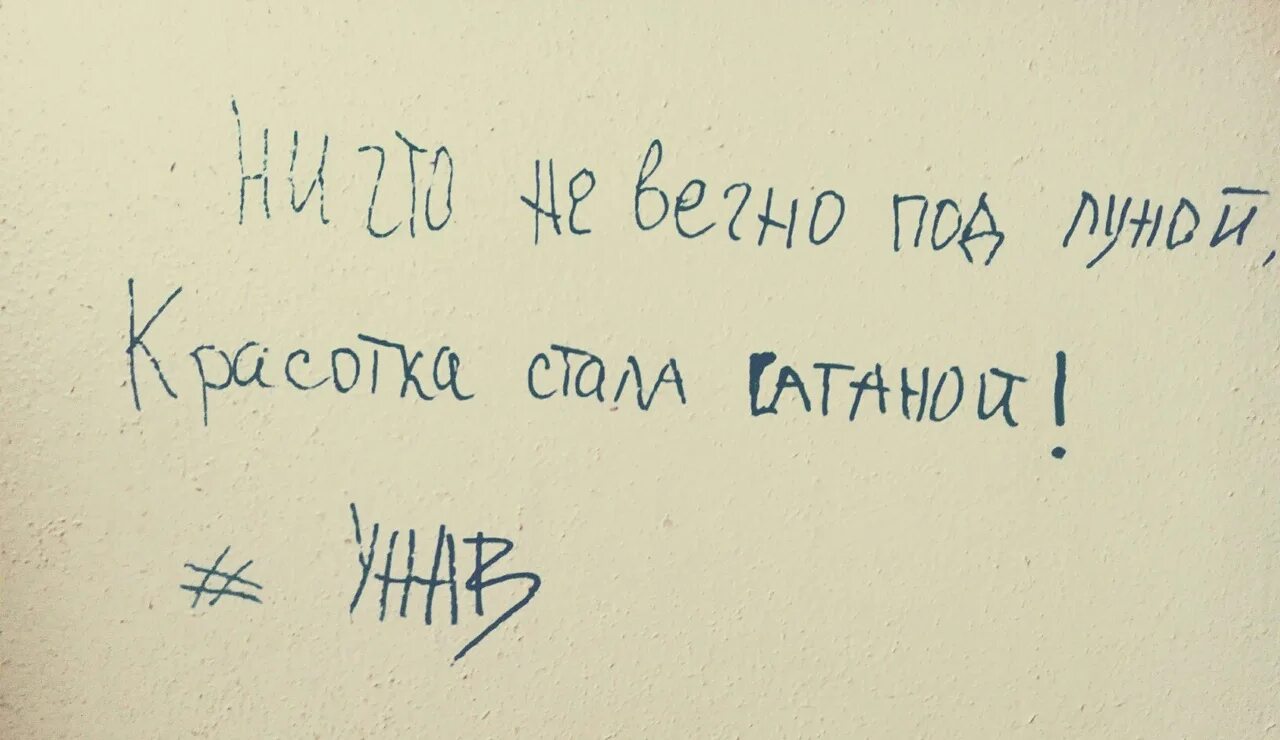 Ни что не вечно под луной,
Красотка стала сатаной!
# УНАВ